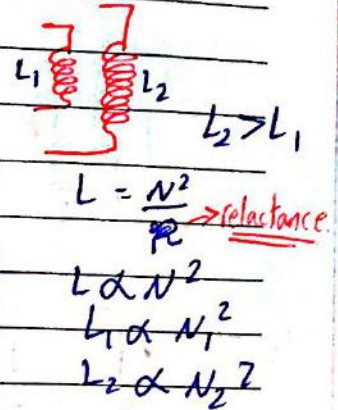 L₁ L₂
L₂ > L₁
L = N²/ℛ → relactance
L ∝ N²
L₁ ∝ N₁²
L₂ ∝ N₂²